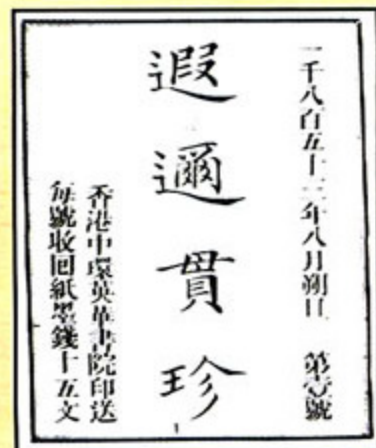 一千八百五十三年八月朔日 第壹號
遐邇貫珍
香港中環英華書院印送
每號收回紙墨錢十五文
1